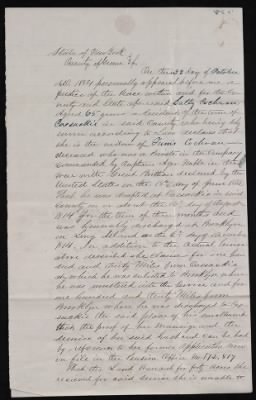 State of New York
County of Greene } ss
On this 3d day of October
A.D. 1854 personally appeared before me a
Justice of the Peace within and for the Co
unty and State aforesaid Sally Cochran
Aged 65 years a resident of the town of
Coxsackie in said County who being duly
sworn according to Law declares that
she is the widow of Cochran
deceased who was a Private in the Company
commanded by Captain in the
war with Great Britain declared by the
United States on the 18th day of June 1812
That he was drafted at Coxsackie in said
County on or about the day of August
1814 for the term of three months and
was honorably discharged at Brooklyn
on Long Island on the day of December
1814. In addition to the Actual Service
above described she claims for one hun
dred and thirty Miles from Coxsackie
by which he was to Brooklyn where
he was mustered into the Service and for
one hundred and thirty Miles from
Brooklyn where he was discharged to Cox
sackie the said place of his enrollment
that the proof of her Marriage and the
decease of her said husband can be had
by reference to her former Application now
on file in the Pension Office No
That the Land Warrant for forty Acres she
received for said Service she is unable to